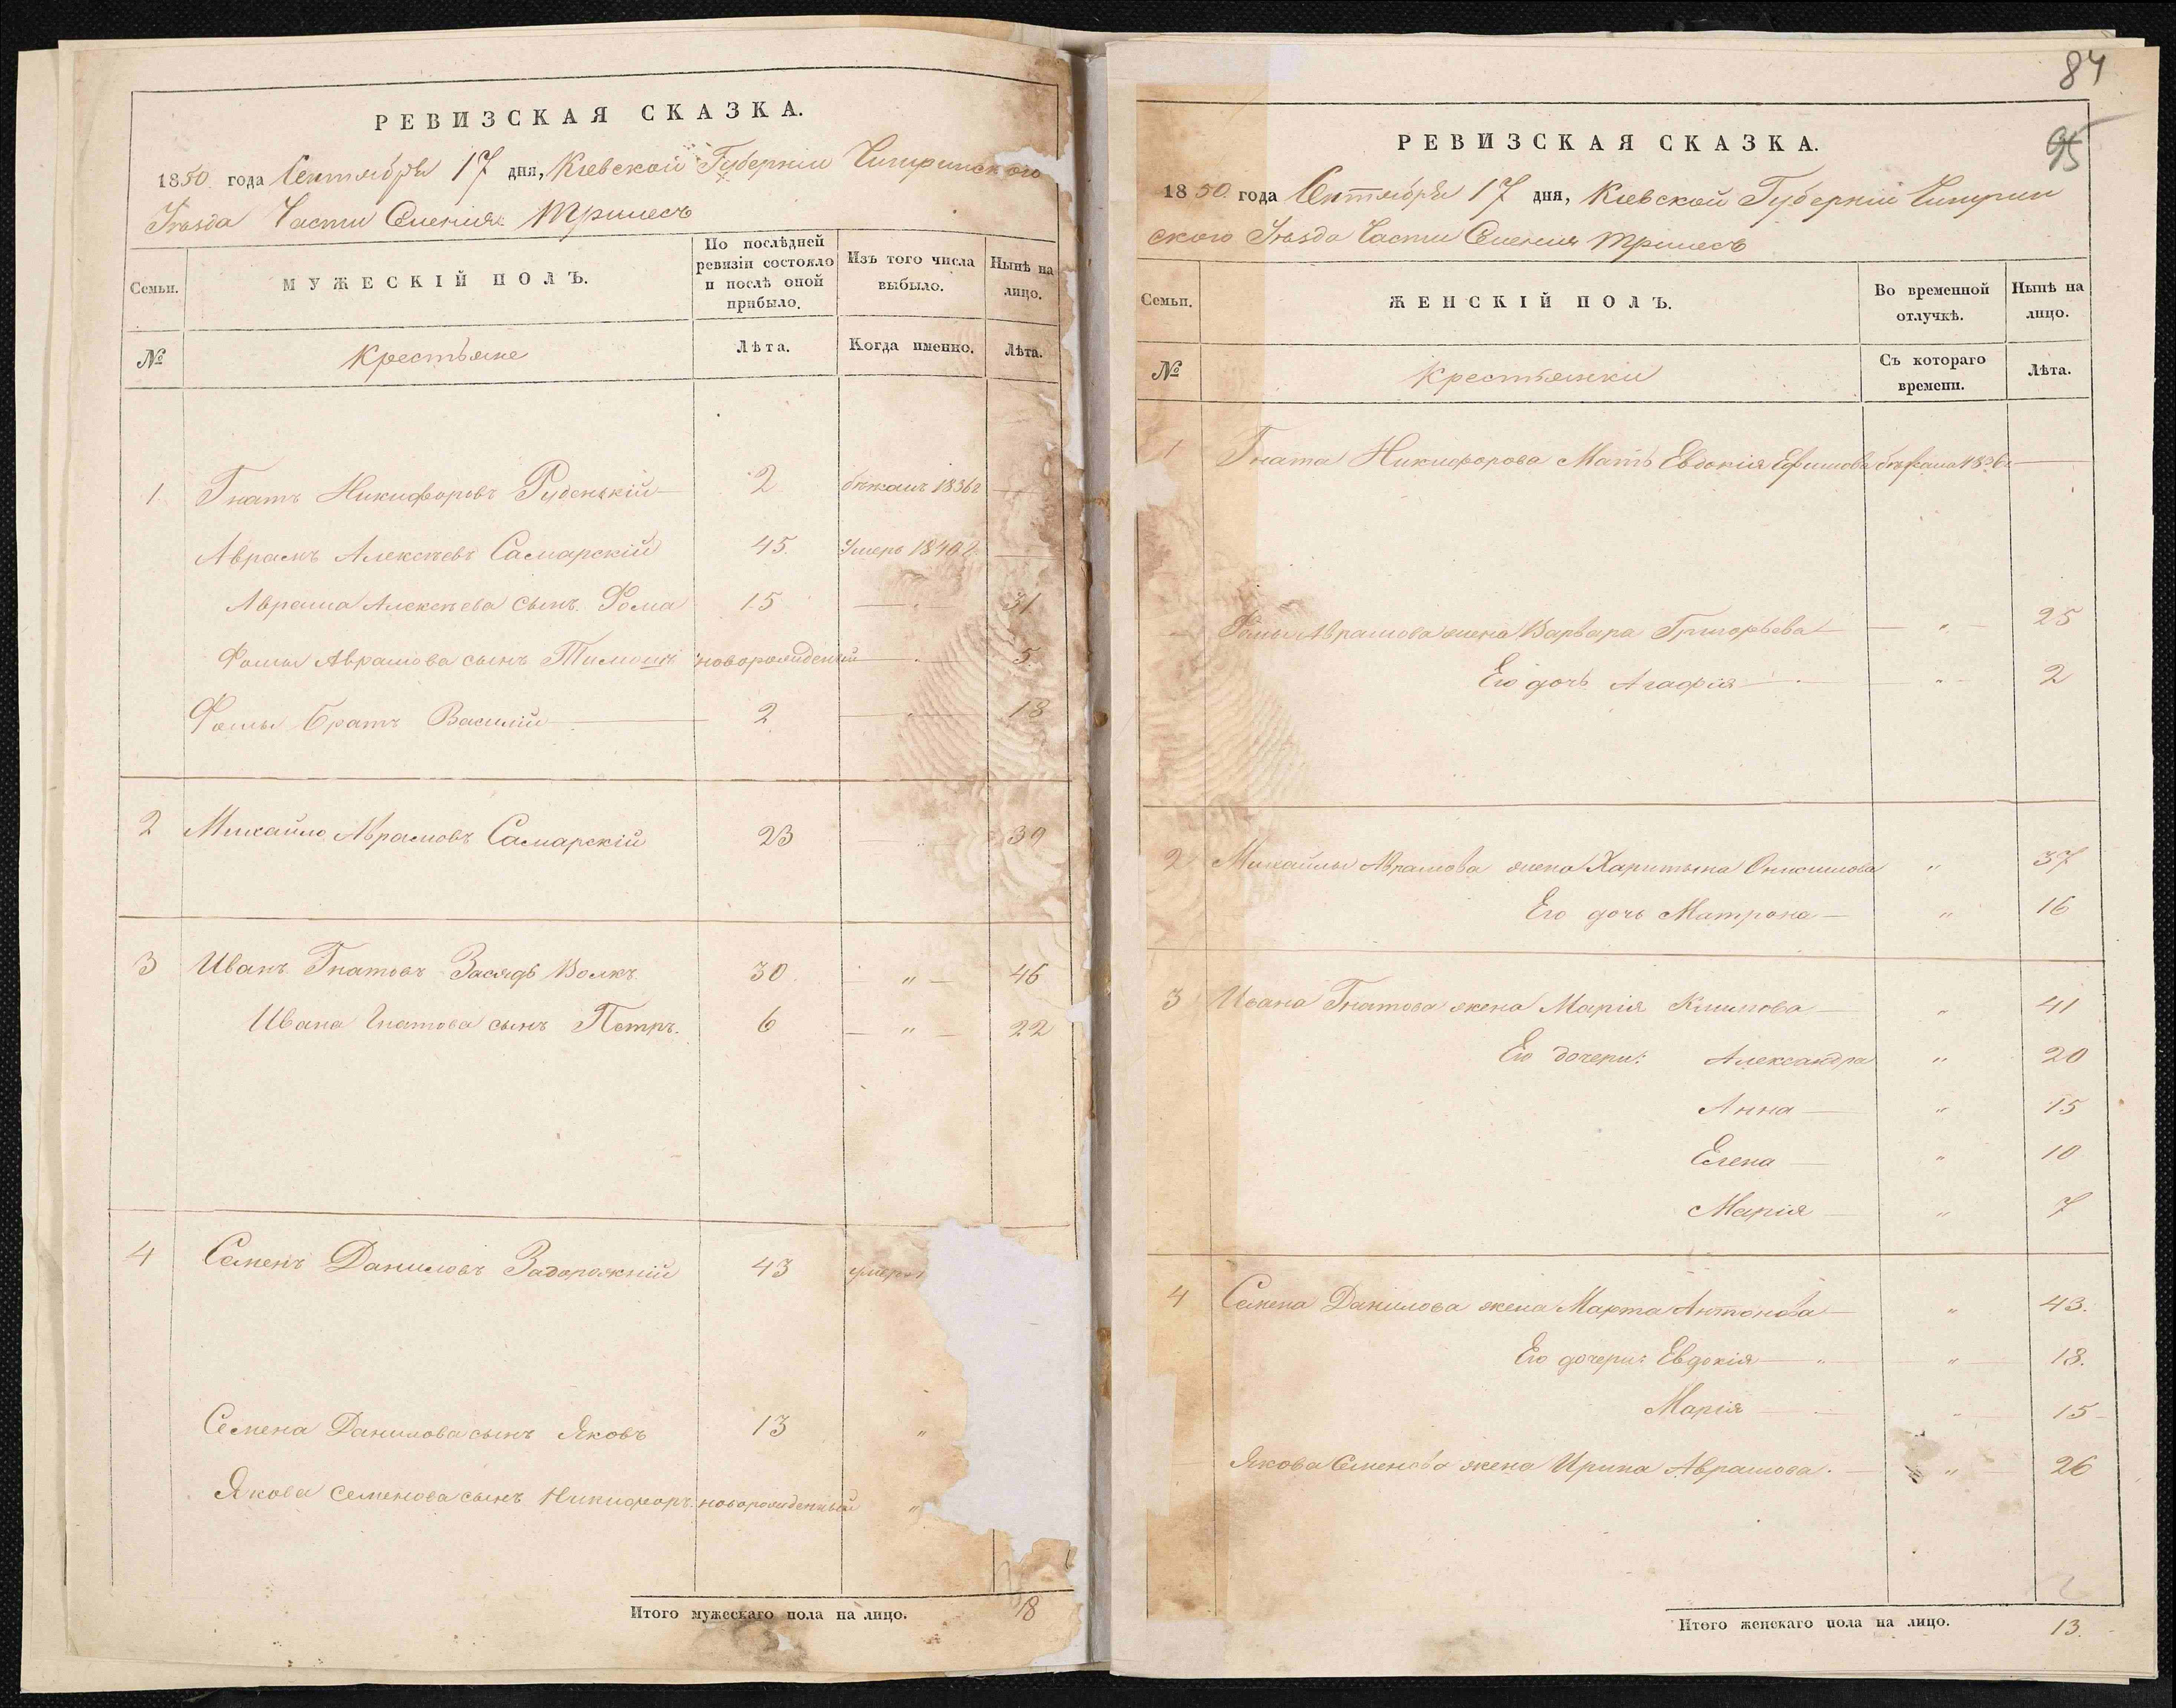 РЕВИЗСКАЯ СКАЗКА.
1850 года Сентября 17 дня, Кіевской Губерніи Чигиринского
Уѣзда Части Селенія Трилесъ
Семьи.
МУЖЕСКІЙ ПОЛЪ.
По послѣдней ревизіи состояло и послѣ оной прибыло.
Изъ того числа выбыло.
Нынѣ на лицо.
№ Крестьяне Лѣта. Когда именно. Лѣта.
1 Гнатъ Никифоровъ Руденькій 2 бѣжалъ 1836г —
Аврамъ Алексѣевъ Самарскій 45. Умеръ 1840г —
Аврама Алексѣева сынъ Фома 15 — 31
Фомы Аврамова сынъ Тимошъ новорожденный — 5
Фомы Братъ Василій — 2 — 18
2 Михайло Аврамовъ Самарскій 23 — 39
3 Иванъ Гнатовъ Волкъ. 30. — " — 46
Ивана Гнатова сынъ Петръ. 6 — " — 22
4 Семенъ Даниловъ Задорожній 43 умеръ
Семена Данилова сынъ Яковъ 13 "
Якова Семенова сынъ Никифоръ новорожденный "
Итого мужескаго пола на лицо. 18
84
95
РЕВИЗСКАЯ СКАЗКА.
1850 года Сентября 17 дня, Кіевской Губерніи Чигирин
ского Уѣзда Части Селенія Трилесъ
Семьи.
ЖЕНСКІЙ ПОЛЪ.
Во временной отлучкѣ.
Нынѣ на лицо.
№ Крестьянки Съ котораго времени. Лѣта.
1 Гната Никифорова Мать Евдокія Ефимова бѣжала 1836г —
Фомы Аврамова жена Варвара Григорьева — " — 25
Его дочь Агафія — " — 2
2 Михайлы Аврамова жена Харитына Онисимова " 37
Его дочь Матрона — " 16
3 Ивана Гнатова жена Марія Климова — " 41
Его дочери: Александра " 20
Анна — " 15
Елена — " 10
Марія — " 7
4 Семена Данилова жена Марта Антонова — " 43.
Его дочери: Евдокія — " — " 18.
Марія — " 15
Якова Семенова жена Ирина Аврамова. — " 26
Итого женскаго пола на лицо. 13.